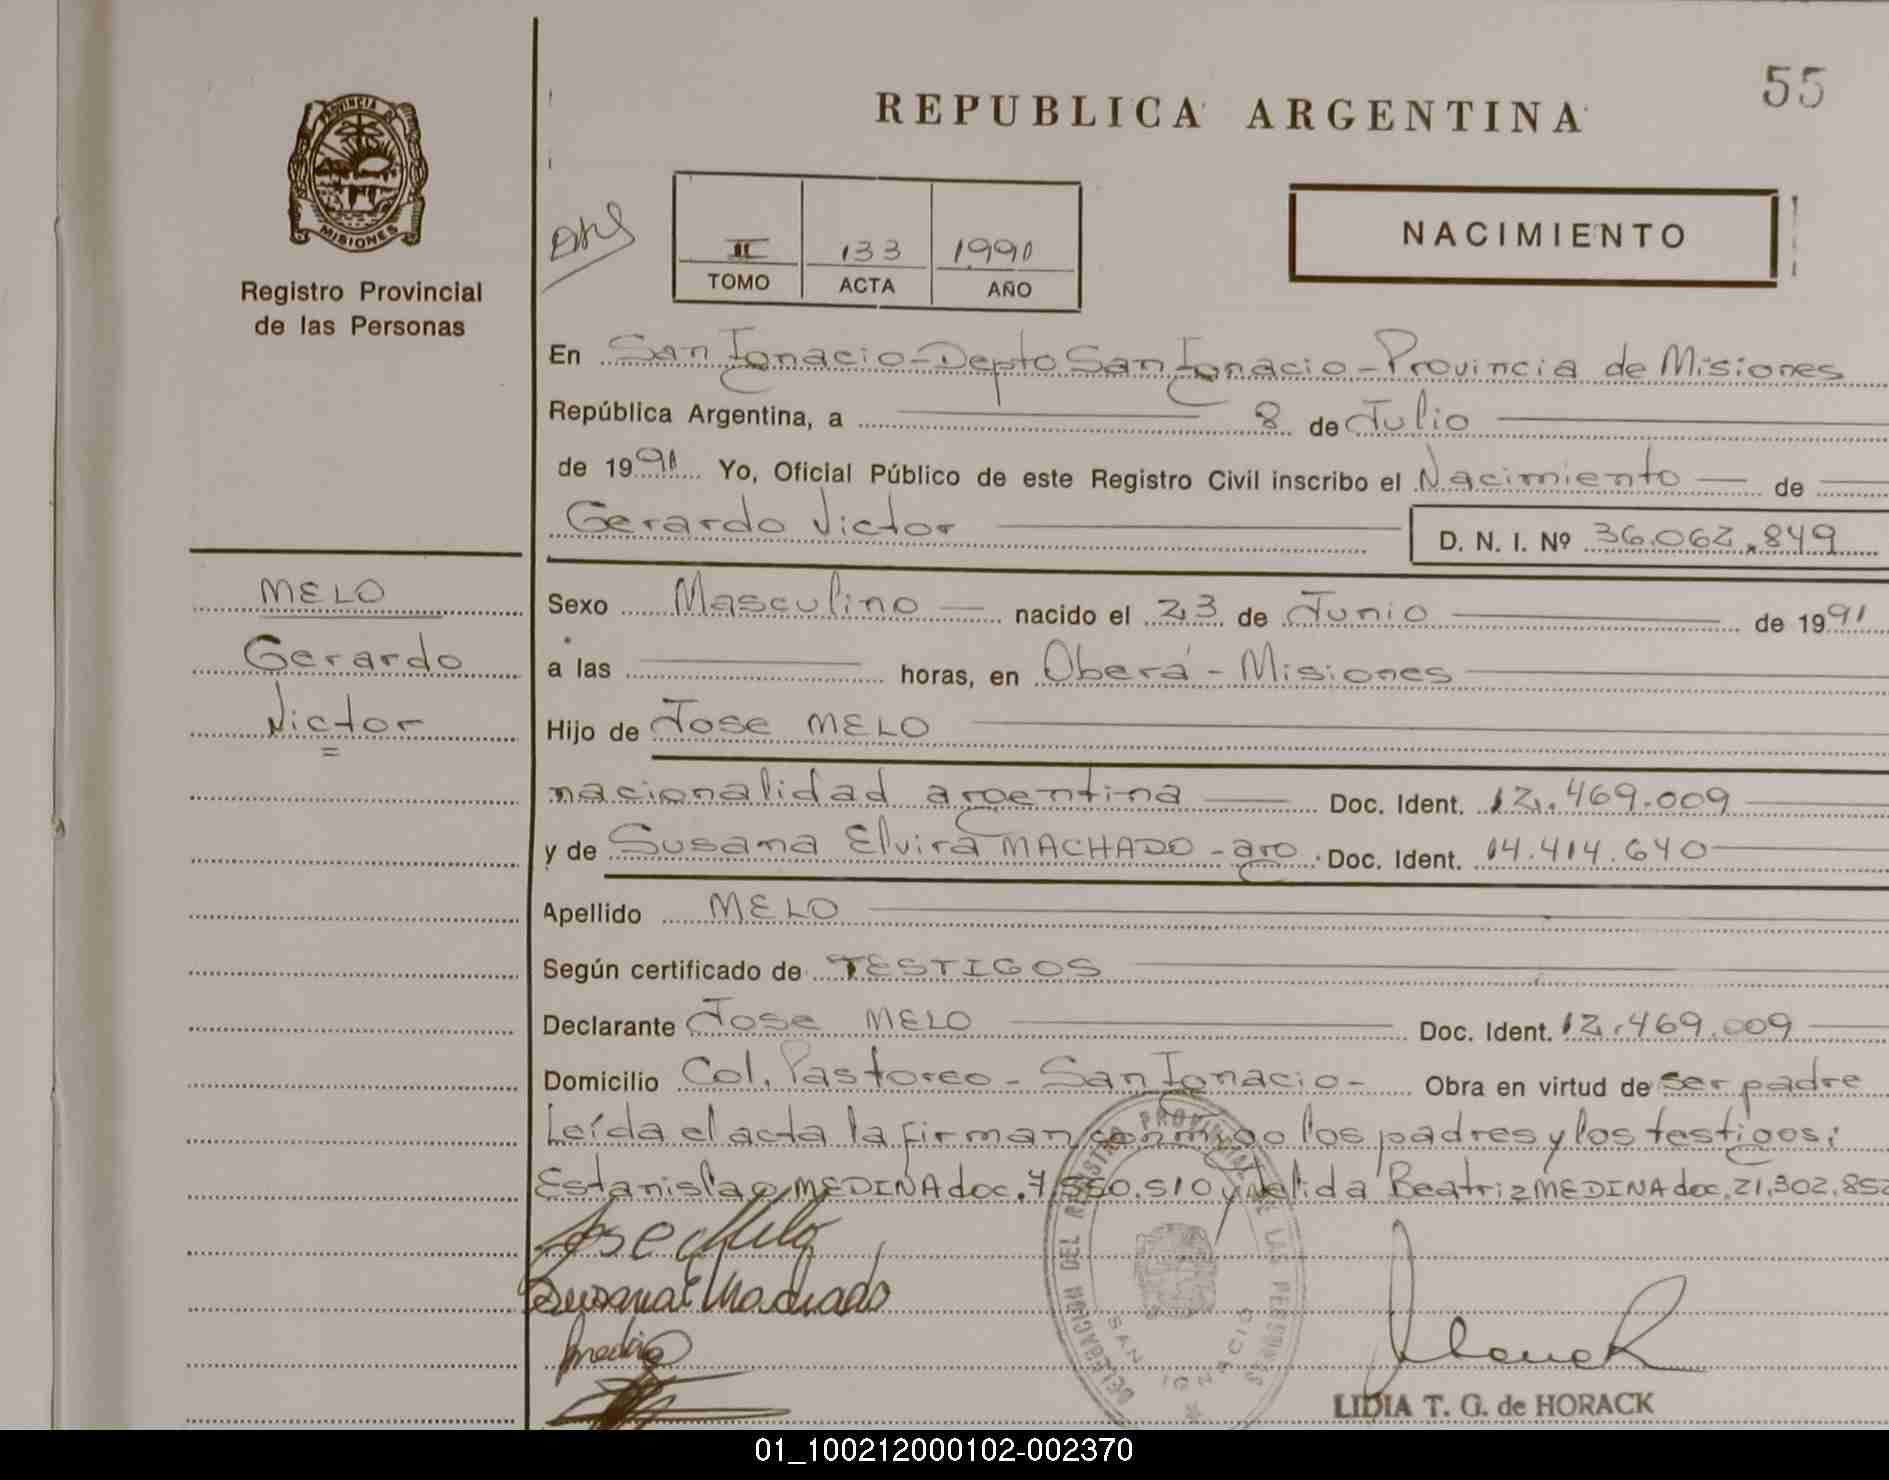 55
REPUBLICA ARGENTINA
PROVINCIA
MISIONES
Registro Provincial
de las Personas
II 133 1991
TOMO ACTA AÑO
NACIMIENTO
En San Ignacio-Depto San Ignacio-Provincia de Misiones
República Argentina, a 8 de Julio
de 1991 Yo, Oficial Público de este Registro Civil inscribo el Nacimiento de
Gerardo Victor D. N. I. Nº 36.062.849
MELO
Gerardo
Victor
Sexo Masculino nacido el 23 de Junio de 1991
a las horas, en Oberá - Misiones
Hijo de Jose MELO
nacionalidad argentina Doc. Ident. 12.469.009
y de Susana Elvira MACHADO - arg. Doc. Ident. 14.414.640
Apellido MELO
Según certificado de TESTIGOS
Declarante Jose MELO Doc. Ident. 12.469.009
Domicilio Col. Pastoreo - San Ignacio - Obra en virtud de ser padre
Leída el acta la firman conmigo los padres y los testigos:
Estanislao MEDINA doc. 7.550.510 y Belida Beatriz MEDINA doc. 21.302.852
Jose Melo
Susana E Machado
DELEGACION DEL REGISTRO PROVINCIAL DE LAS PERSONAS
SAN IGNACIO
LIDIA T. G. de HORACK
01_100212000102-002370